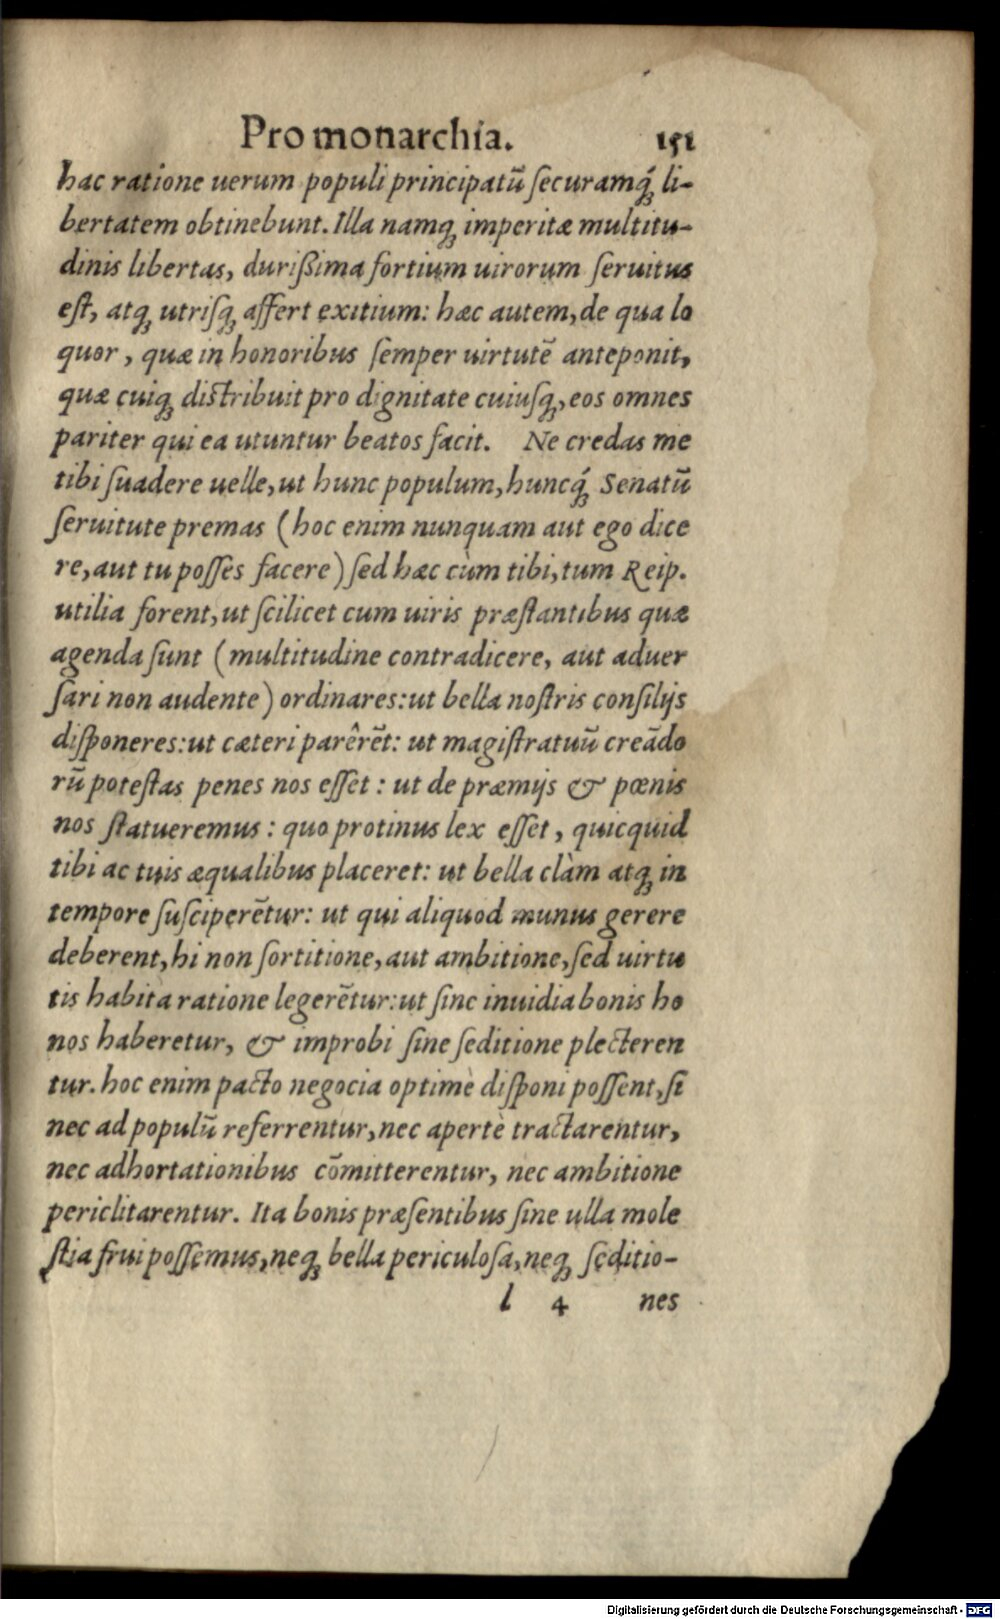 Pro monarchia. 151
hac ratione uerum populi principatũ ſecuramq́; li-
bertatem obtinebunt. Illa namq; imperitæ multitu-
dinis libertas, durißima fortium uirorum ſeruitus
eſt, atq; utriſq; affert exitium: hæc autem, de qua lo
quor, quæ in honoribus ſemper uirtutẽ anteponit,
quæ cuiq; diſtribuit pro dignitate cuiuſq;, eos omnes
pariter qui ea utuntur beatos facit. Ne credas me
tibi ſuadere uelle, ut hunc populum, huncq́; Senatũ
ſeruitute premas (hoc enim nunquam aut ego dice
re, aut tu poſſes facere) ſed hæc cùm tibi, tum Reip.
utilia forent, ut ſcilicet cum uiris præſtantibus quæ
agenda ſunt (multitudine contradicere, aut aduer
ſari non audente) ordinares: ut bella noſtris conſilijs
diſponeres: ut cæteri parêrẽt: ut magiſtratuũ creãdo
rũ poteſtas penes nos eſſet: ut de præmijs & pœnis
nos ſtatueremus: quo protinus lex eſſet, quicquid
tibi ac tuis æqualibus placeret: ut bella clàm atq; in
tempore ſuſciperẽtur: ut qui aliquod munus gerere
deberent, hi non ſortitione, aut ambitione, ſed uirtu
tis habita ratione legerẽtur: ut ſine inuidia bonis ho
nos haberetur, & improbi ſine ſeditione plecteren
tur. hoc enim pacto negocia optimè diſponi poſſent, ſi
nec ad populũ referrentur, nec apertè tractarentur,
nec adhortationibus cõmitterentur, nec ambitione
periclitarentur. Ita bonis præſentibus ſine ulla mole
ſtia frui poſſemus, neq; bella periculoſa, neq; ſeditio-
l 4 nes
Digitalisierung gefördert durch die Deutsche Forschungsgemeinschaft - DFG